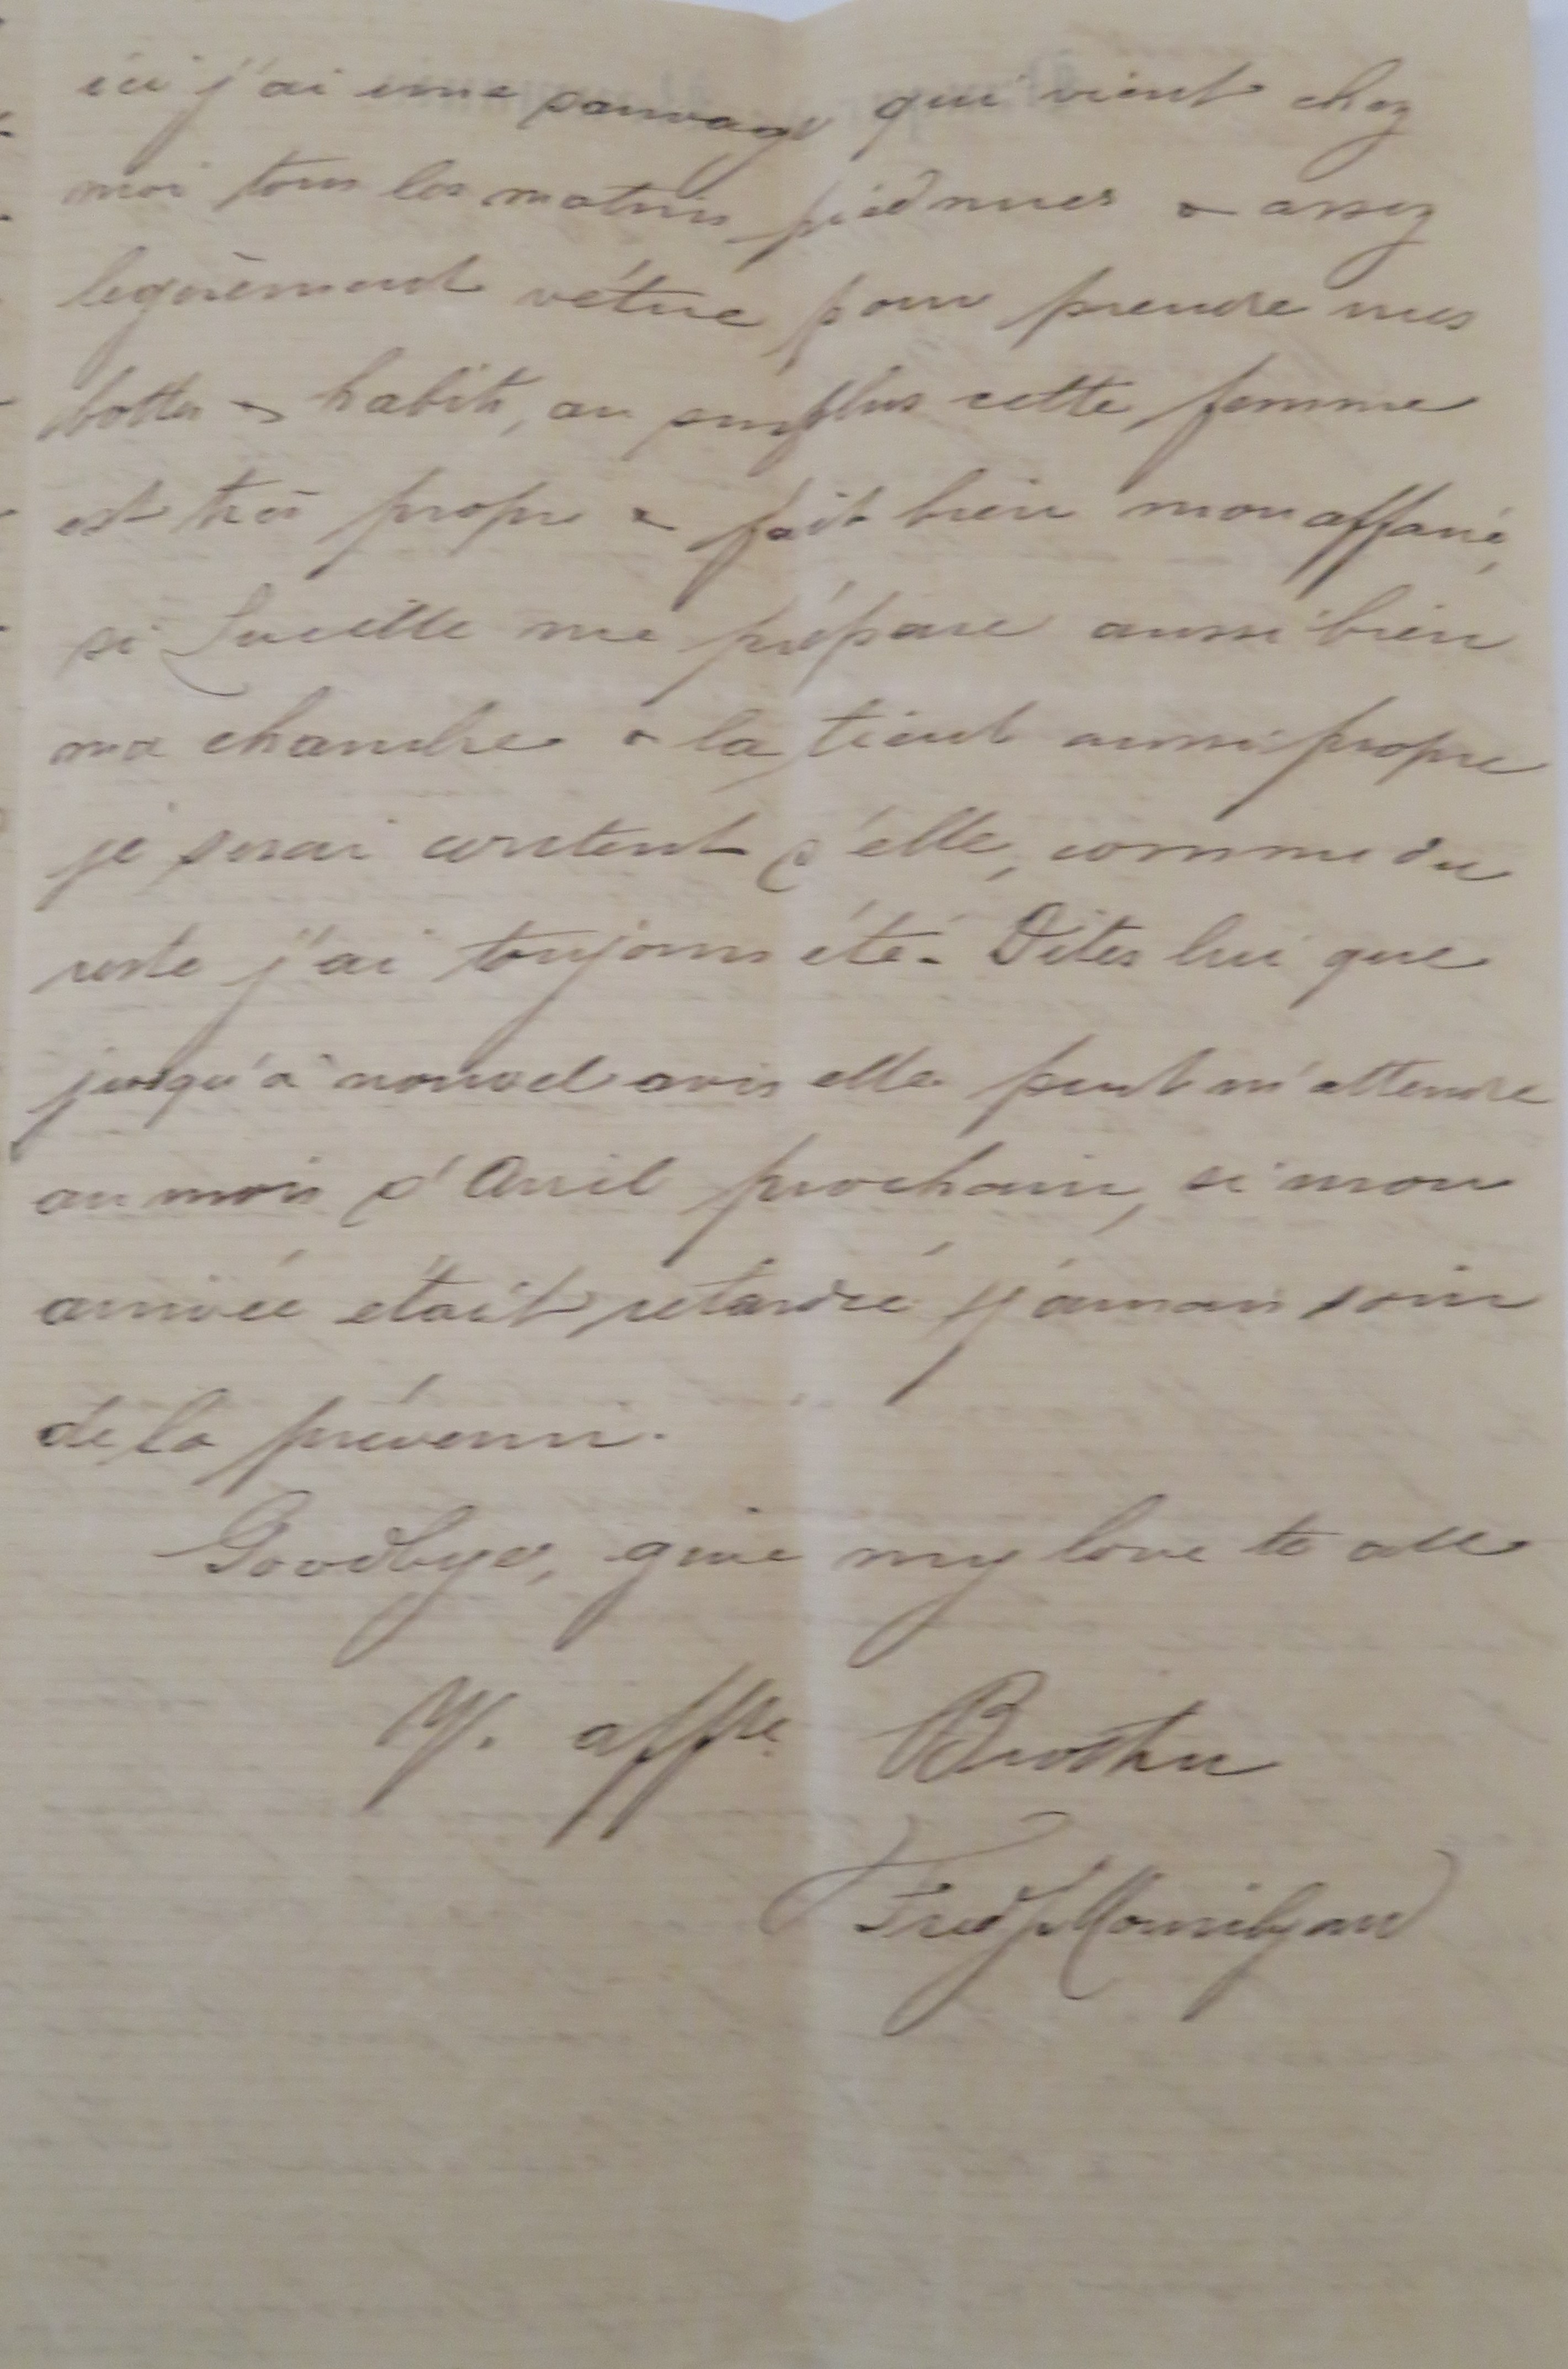 ici j'ai une sauvage qui vient chez
moi tous les matins, pied nues & assez
legèrement vétue pour prendre mes
bottes & habits, au surplus cette femme
est très propre & fait bien mon affaire,
si Lucille me prépare aussi bien
ma chambre & la tient aussi propre
je serai content d'elle, comme du
reste j'ai toujours été. Dites lui que
jusqu'à nouvel avis elle peut m'attendre
au mois d'Avril prochain, si mon
arrivée était retardée j'aurais soin
de la prévenir.
Goodbye, give my love to all
Y. affte Brother
Fred